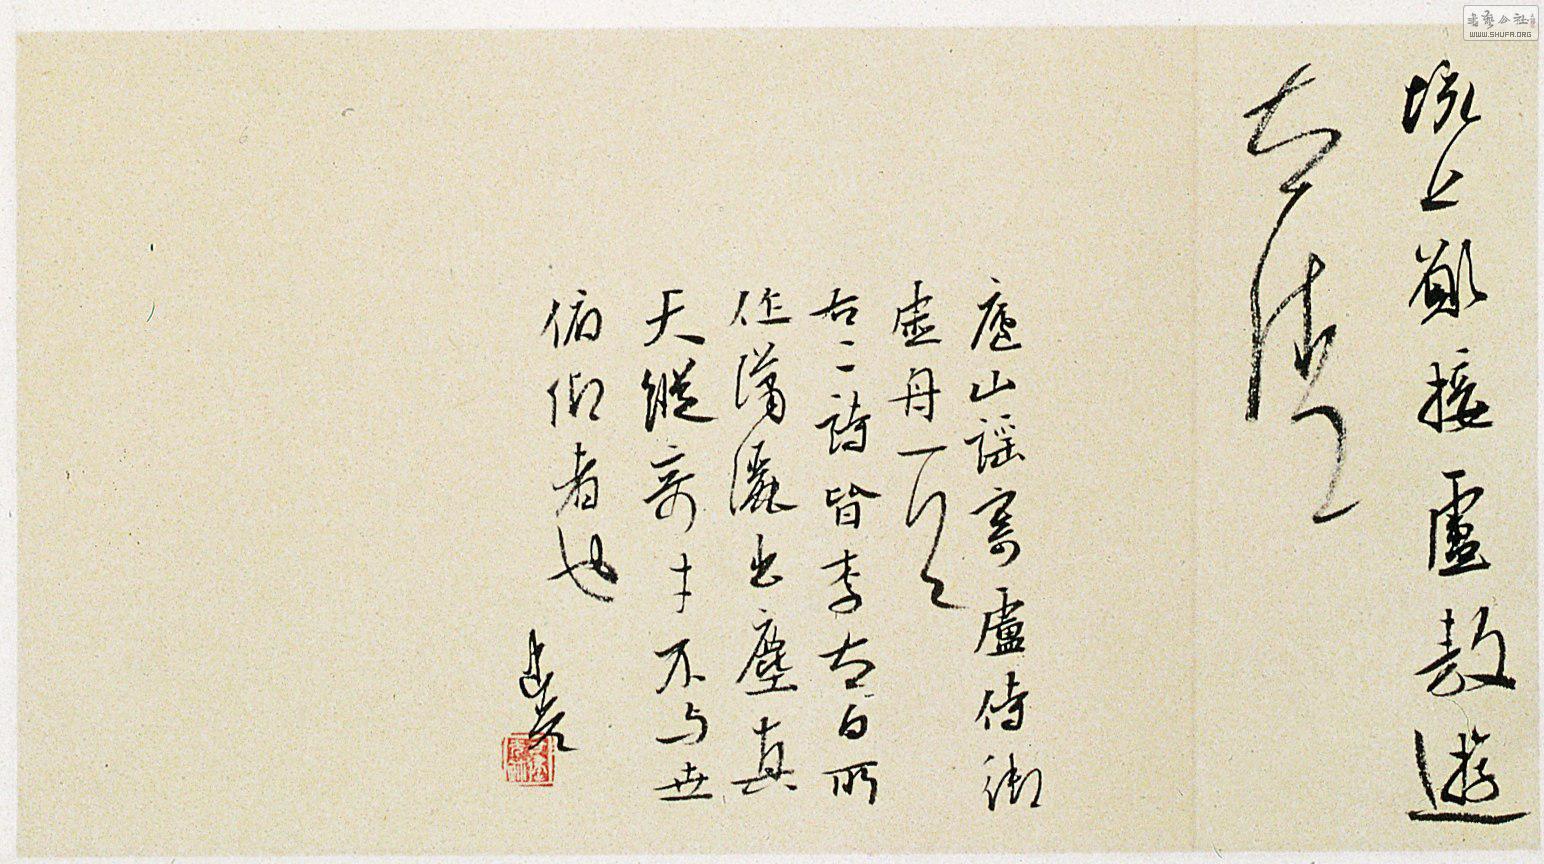 垓上願接盧敖遊
太清
廬山謡寄盧侍御
虚舟一
右二詩皆李太白所
作瀟灑出塵真
天縱奇才不与世
俯仰者也
書藝公社
WWW.SHUFA.ORG